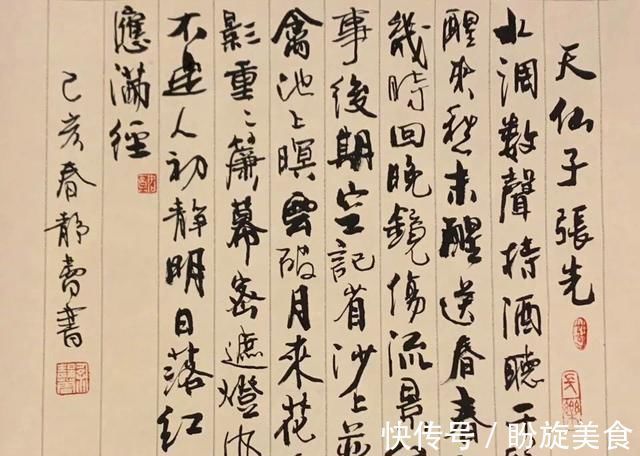 天仙子張先
水調數聲持酒聽
醒來愁未醒送春春
幾時回晚鏡傷流景
事後期空記省沙上並
禽池上暝雲破月來花
影重々簾幕密遮燈風
不定人初靜明日落紅
應滿徑
己亥春靜書
快传号 / 盼旋美食